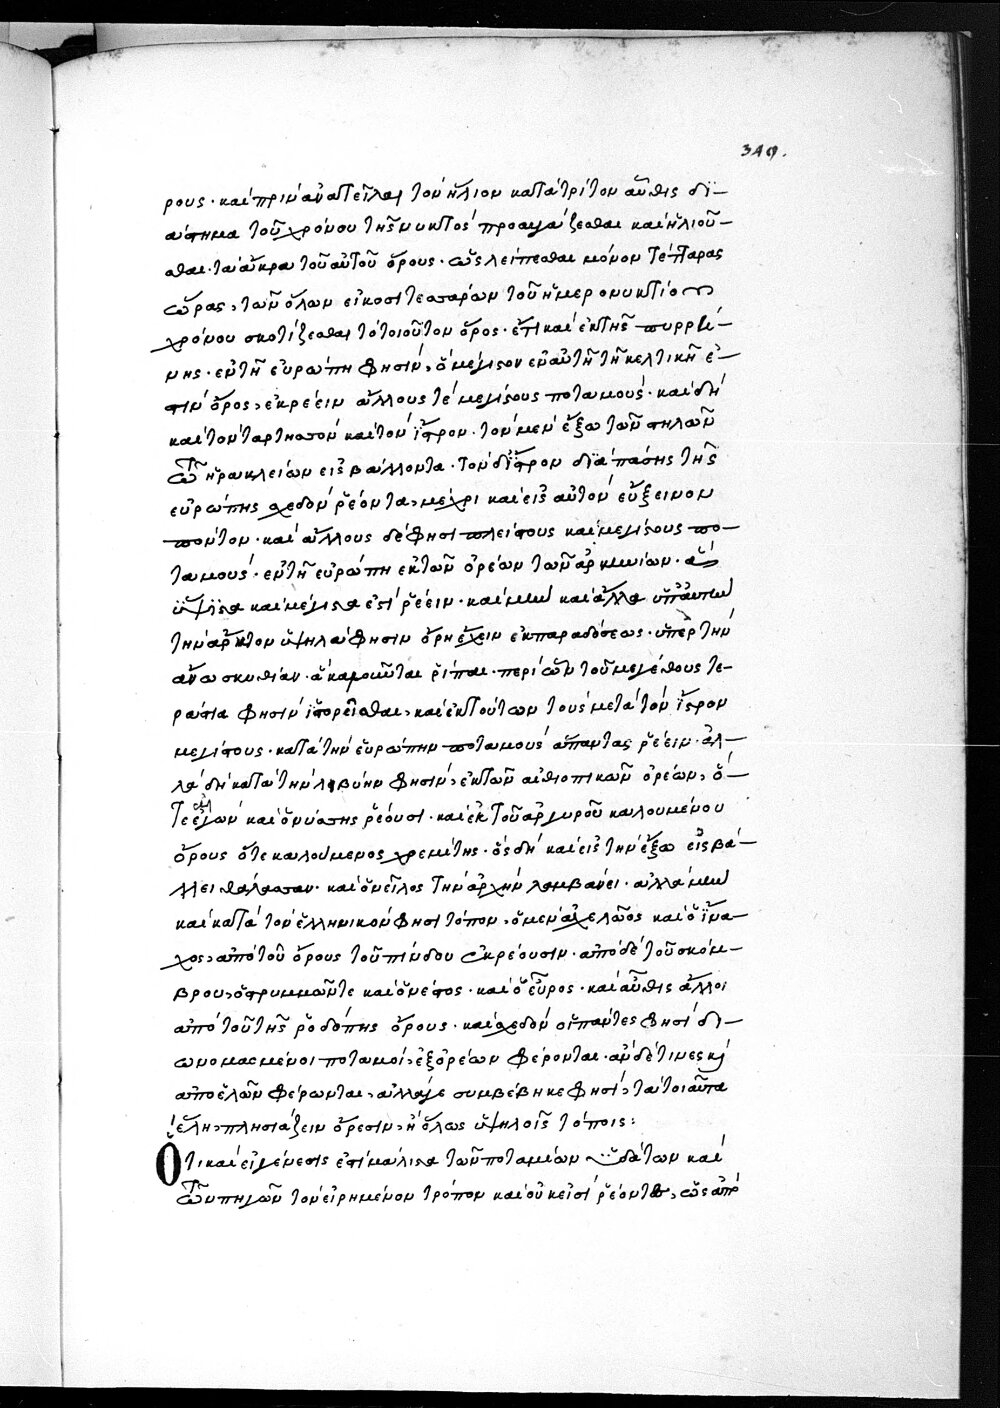 349.
ρους· καὶ πρὶν ἀνατεῖλαι τὸν ἥλιον κατὰ τρίτον αὖθις δι-
άστημα τοῦ χρόνου τῆς νυκτὸς προαυγάζεσθαι καὶ ἡλιοῦ-
σθαι τὰ ἄκρα τοῦ αὐτοῦ ὄρους· ὡς λείπεσθαι μόνον τέτταρας
ὥρας, τῶν ὅλων εἰκοσιτεσσάρων τοῦ ἡμερονυκτίου
χρόνου σκοτίζεσθαι τὸ τοιοῦτον ὄρος· ἔτι καὶ ἐκ τῆς πυρρί-
νης· ἐν τῇ εὐρώπῃ φησὶν, ὃ μέγιστον ἐν αὐτῇ τῇ κελτικῇ ἐ-
στὶν ὄρος, ἐκρέειν ἄλλους τὲ μεγίστους ποταμοὺς· καὶ δὴ
καὶ τὸν ταρτησσὸν καὶ τὸν ἴστρον· τὸν μὲν ἔξω τῶν στηλῶν
τῶν ἡρακλείων εἰσβάλλοντα· τὸν δὲ ἴστρον διὰ πάσης τῆς
εὐρώπης σχεδὸν ῥέοντα, μέχρι καὶ εἰς αὐτὸν εὔξεινον
πόντον· καὶ ἄλλους δέ φησι πλείστους καὶ μεγίστους πο-
ταμοὺς· ἐν τῇ εὐρώπῃ ἐκ τῶν ὀρέων τῶν ἀρκυνίων· ἃ
ὕψιστα καὶ μέγιστα ἐστὶ ῥέειν· καὶ μὴν καὶ ἄλλα ὑπ' αὐτὴν
τὴν ἄρκτον ὑψηλά φησιν ὄρη ἔχειν ἐκ παραδόσεως· ὑπὲρ τὴν
ἄνω σκυθίαν· ἃ καλοῦνται ῥίπαι· περὶ ὧν τοῦ μεγέθους τε-
ράστια φησὶν ἱστορεῖσθαι, καὶ ἐκ τούτων τοὺς μετὰ τὸν ἴστρον
μεγίστους· κατὰ τὴν εὐρώπην ποταμοὺς ἅπαντας ῥέειν· ἀλ-
λὰ δὴ κατὰ τὴν λιβύην φησὶν, ἐκ τῶν αἰθιοπικῶν ὀρέων, ὅ-
τε αἰγὼν καὶ ὁ νύσης ῥέουσι· καὶ ἐκ τοῦ ἀργυροῦ καλουμένου
ὄρους ὅτε καλούμενος χρεμέτης· ὃς δὴ καὶ εἰς τὴν ἔξω εἰσβά-
λλει θάλασσαν· καὶ ὁ νεῖλος τὴν ἀρχὴν λαμβάνει· ἀλλὰ μὴν
καὶ κατὰ τὸν ἑλληνικὸν φησὶ τόπον, ὁ μὲν ἀχελῶος καὶ ὁ ἴνα-
χος, ἀπὸ τοῦ ὄρους τοῦ πίνδου ἐκρέουσιν· ἀπὸ δὲ τοῦ σκόμ-
βρου, ὁ στρυμών τε καὶ ὁ νέστος· καὶ ὁ εὖρος· καὶ αὖθις ἄλλοι
ἀπὸ τοῦ τῆς ῥοδόπης ὄρους· καὶ σχεδὸν οἱ πάντες φησὶ δι-
ωνομασμένοι ποταμοί, ἐξ ὀρέων φέρονται· ἂν δέ τινες καὶ
ἀπὸ ἑλῶν φέρωνται, ἀλλά γε συμβέβηκε φησί, τὰ τοιαῦτα
ἕλη, πλησιάζειν ὄρεσιν, ἢ ὅλως ὑψηλοῖς τόποις:
Ὅτι καὶ εἰ γένεσις ἐστὶ μάλιστα τῶν ποταμίων ὑδάτων καὶ
τῶν πηγῶν τὸν εἰρημένον τρόπον καὶ οὐκ εἰσὶ ῥέοντα, ὡς ἀπὸ